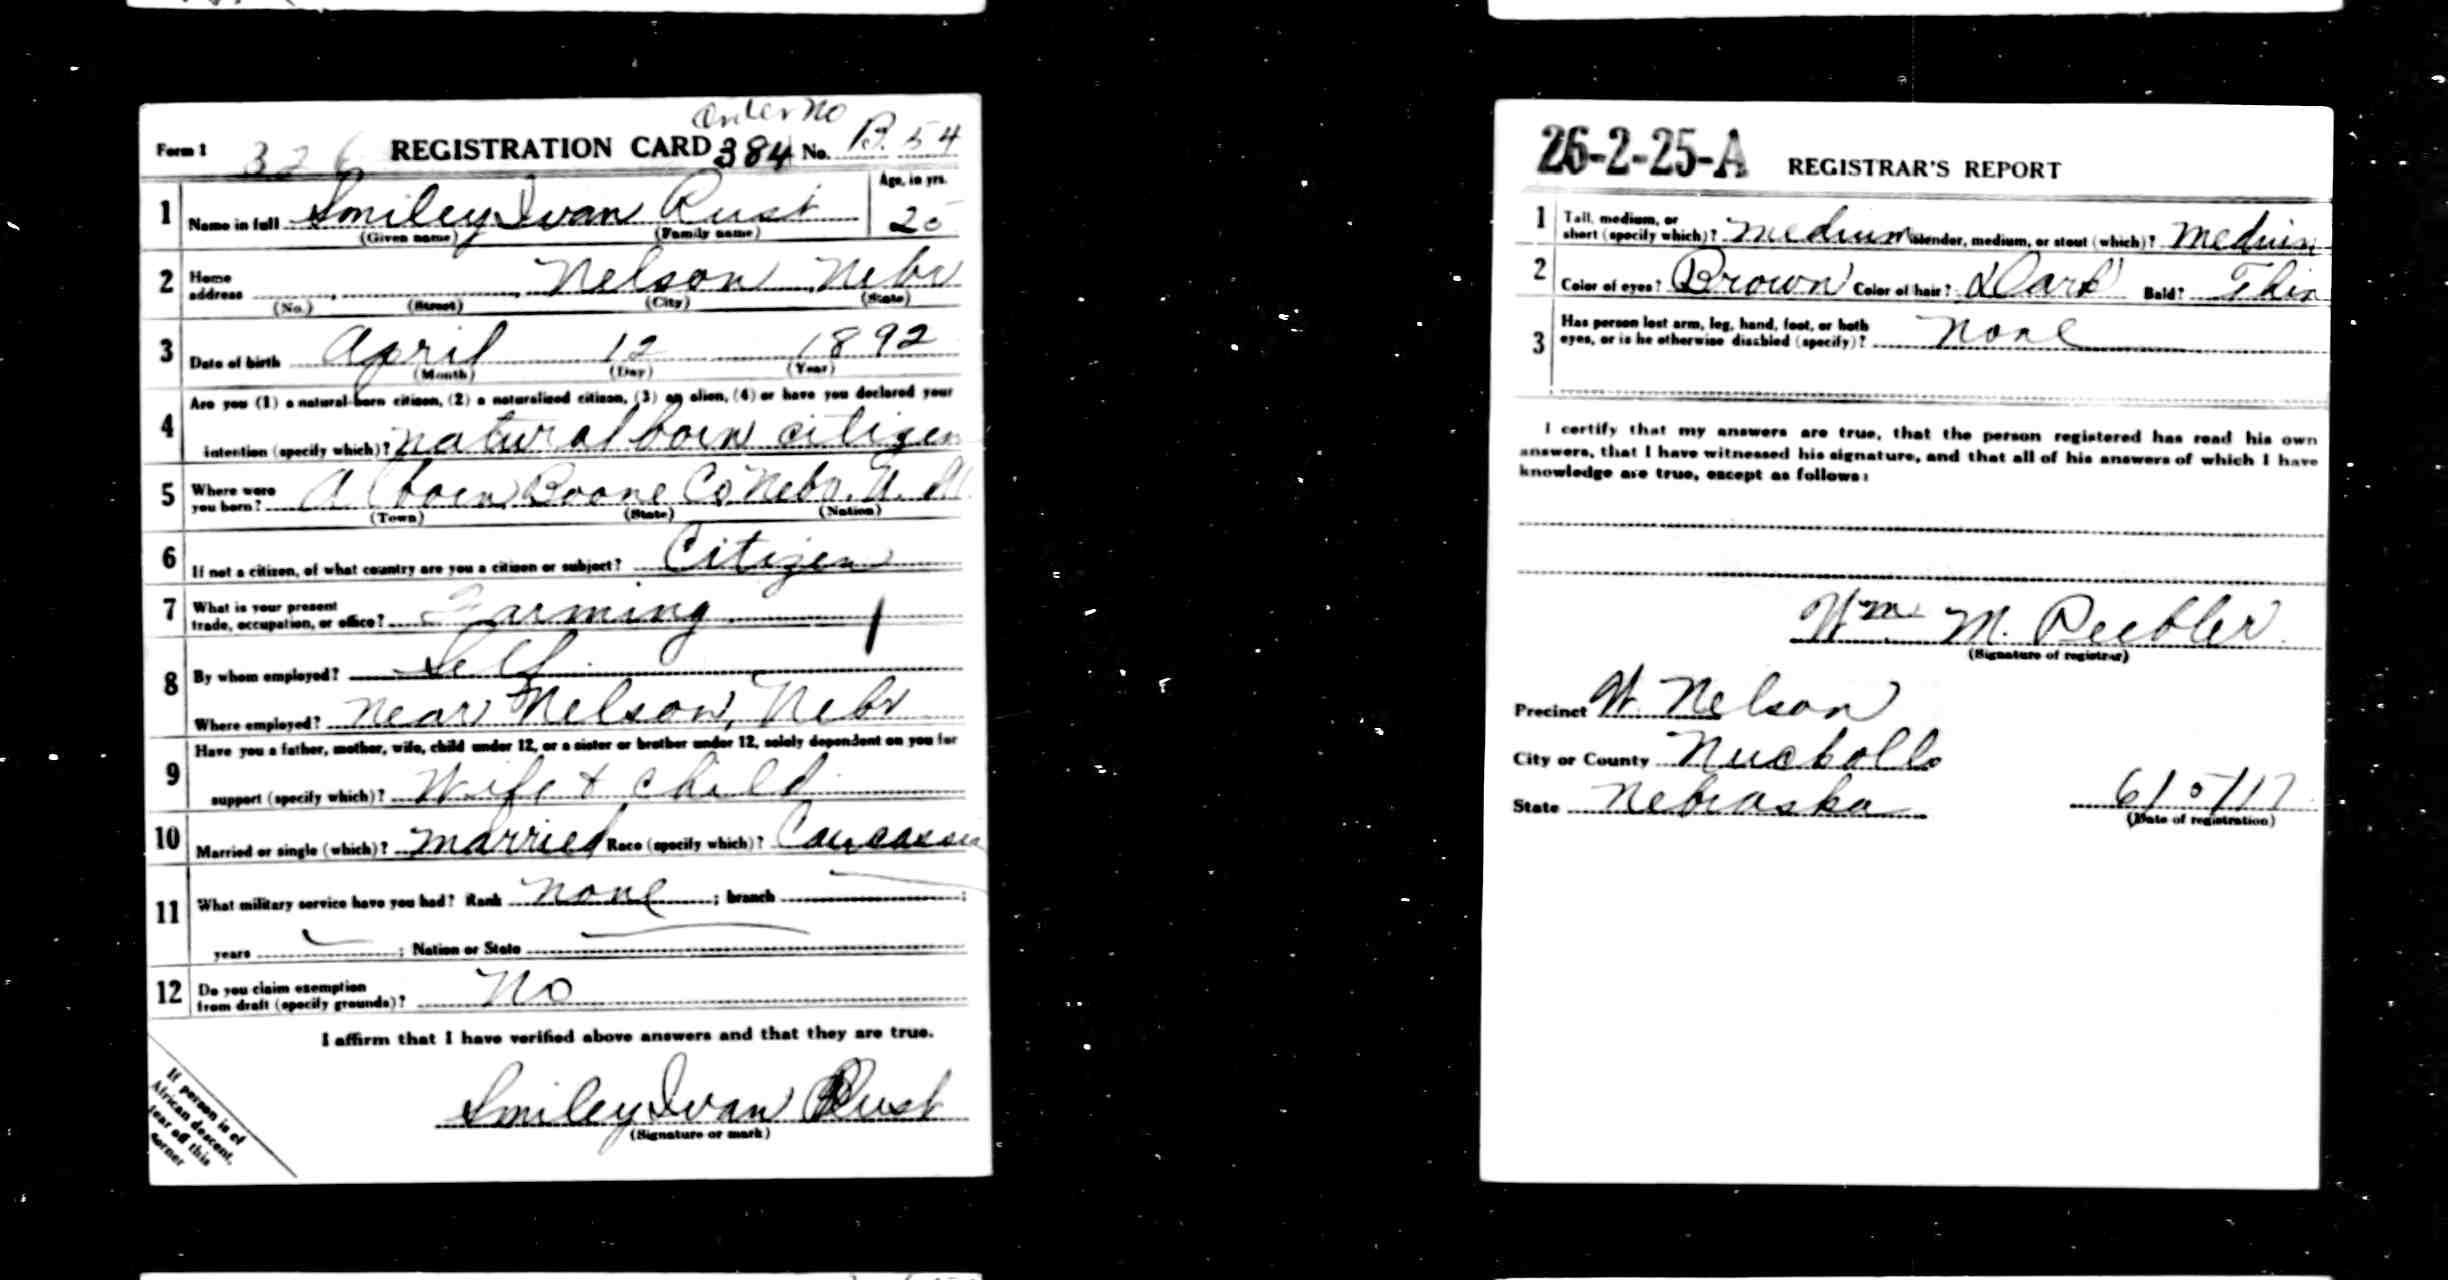 Order No
Form 1 326 REGISTRATION CARD 384 No. B. 54
1 Name in full Smiley Ivan Rust Age, in yrs. 25
(Given name) (Family name)
2 Home address Nelson, Nebr
(No.) (Street) (City) (State)
3 Date of birth April 12 1892
(Month) (Day) (Year)
4 Are you (1) a natural-born citizen, (2) a naturalized citizen, (3) an alien, (4) or have you declared your
intention (specify which)? natural born citizen
5 Where were you born? Boone Co Nebr.
(Town) (State) (Nation)
6 If not a citizen, of what country are you a citizen or subject? Citizen
7 What is your present trade, occupation, or office? Farming
8 By whom employed? Self
Where employed? near Nelson, Nebr
9 Have you a father, mother, wife, child under 12, or a sister or brother under 12, solely dependent on you for
support (specify which)? Wife & child
10 Married or single (which)? married Race (specify which)? Caucassia
11 What military service have you had? Rank none ; branch ;
years ; Nation or State
12 Do you claim exemption from draft (specify grounds)? No
I affirm that I have verified above answers and that they are true.
Smiley Ivan Rust
(Signature or mark)
If person is of
African descent,
tear off this
corner
26-2-25-A REGISTRAR'S REPORT
1 Tall, medium, or short (specify which)? medium Slender, medium, or stout (which)? medium
2 Color of eyes? Brown Color of hair? Dark Bald? Thin
3 Has person lost arm, leg, hand, foot, or both
eyes, or is he otherwise disabled (specify)? none
I certify that my answers are true, that the person registered has read his own
answers, that I have witnessed his signature, and that all of his answers of which I have
knowledge are true, except as follows:
Wm M. Peebler
(Signature of registrar)
Precinct W. Nelson
City or County Nuckolls
State Nebraska 6/5/17
(Date of registration)